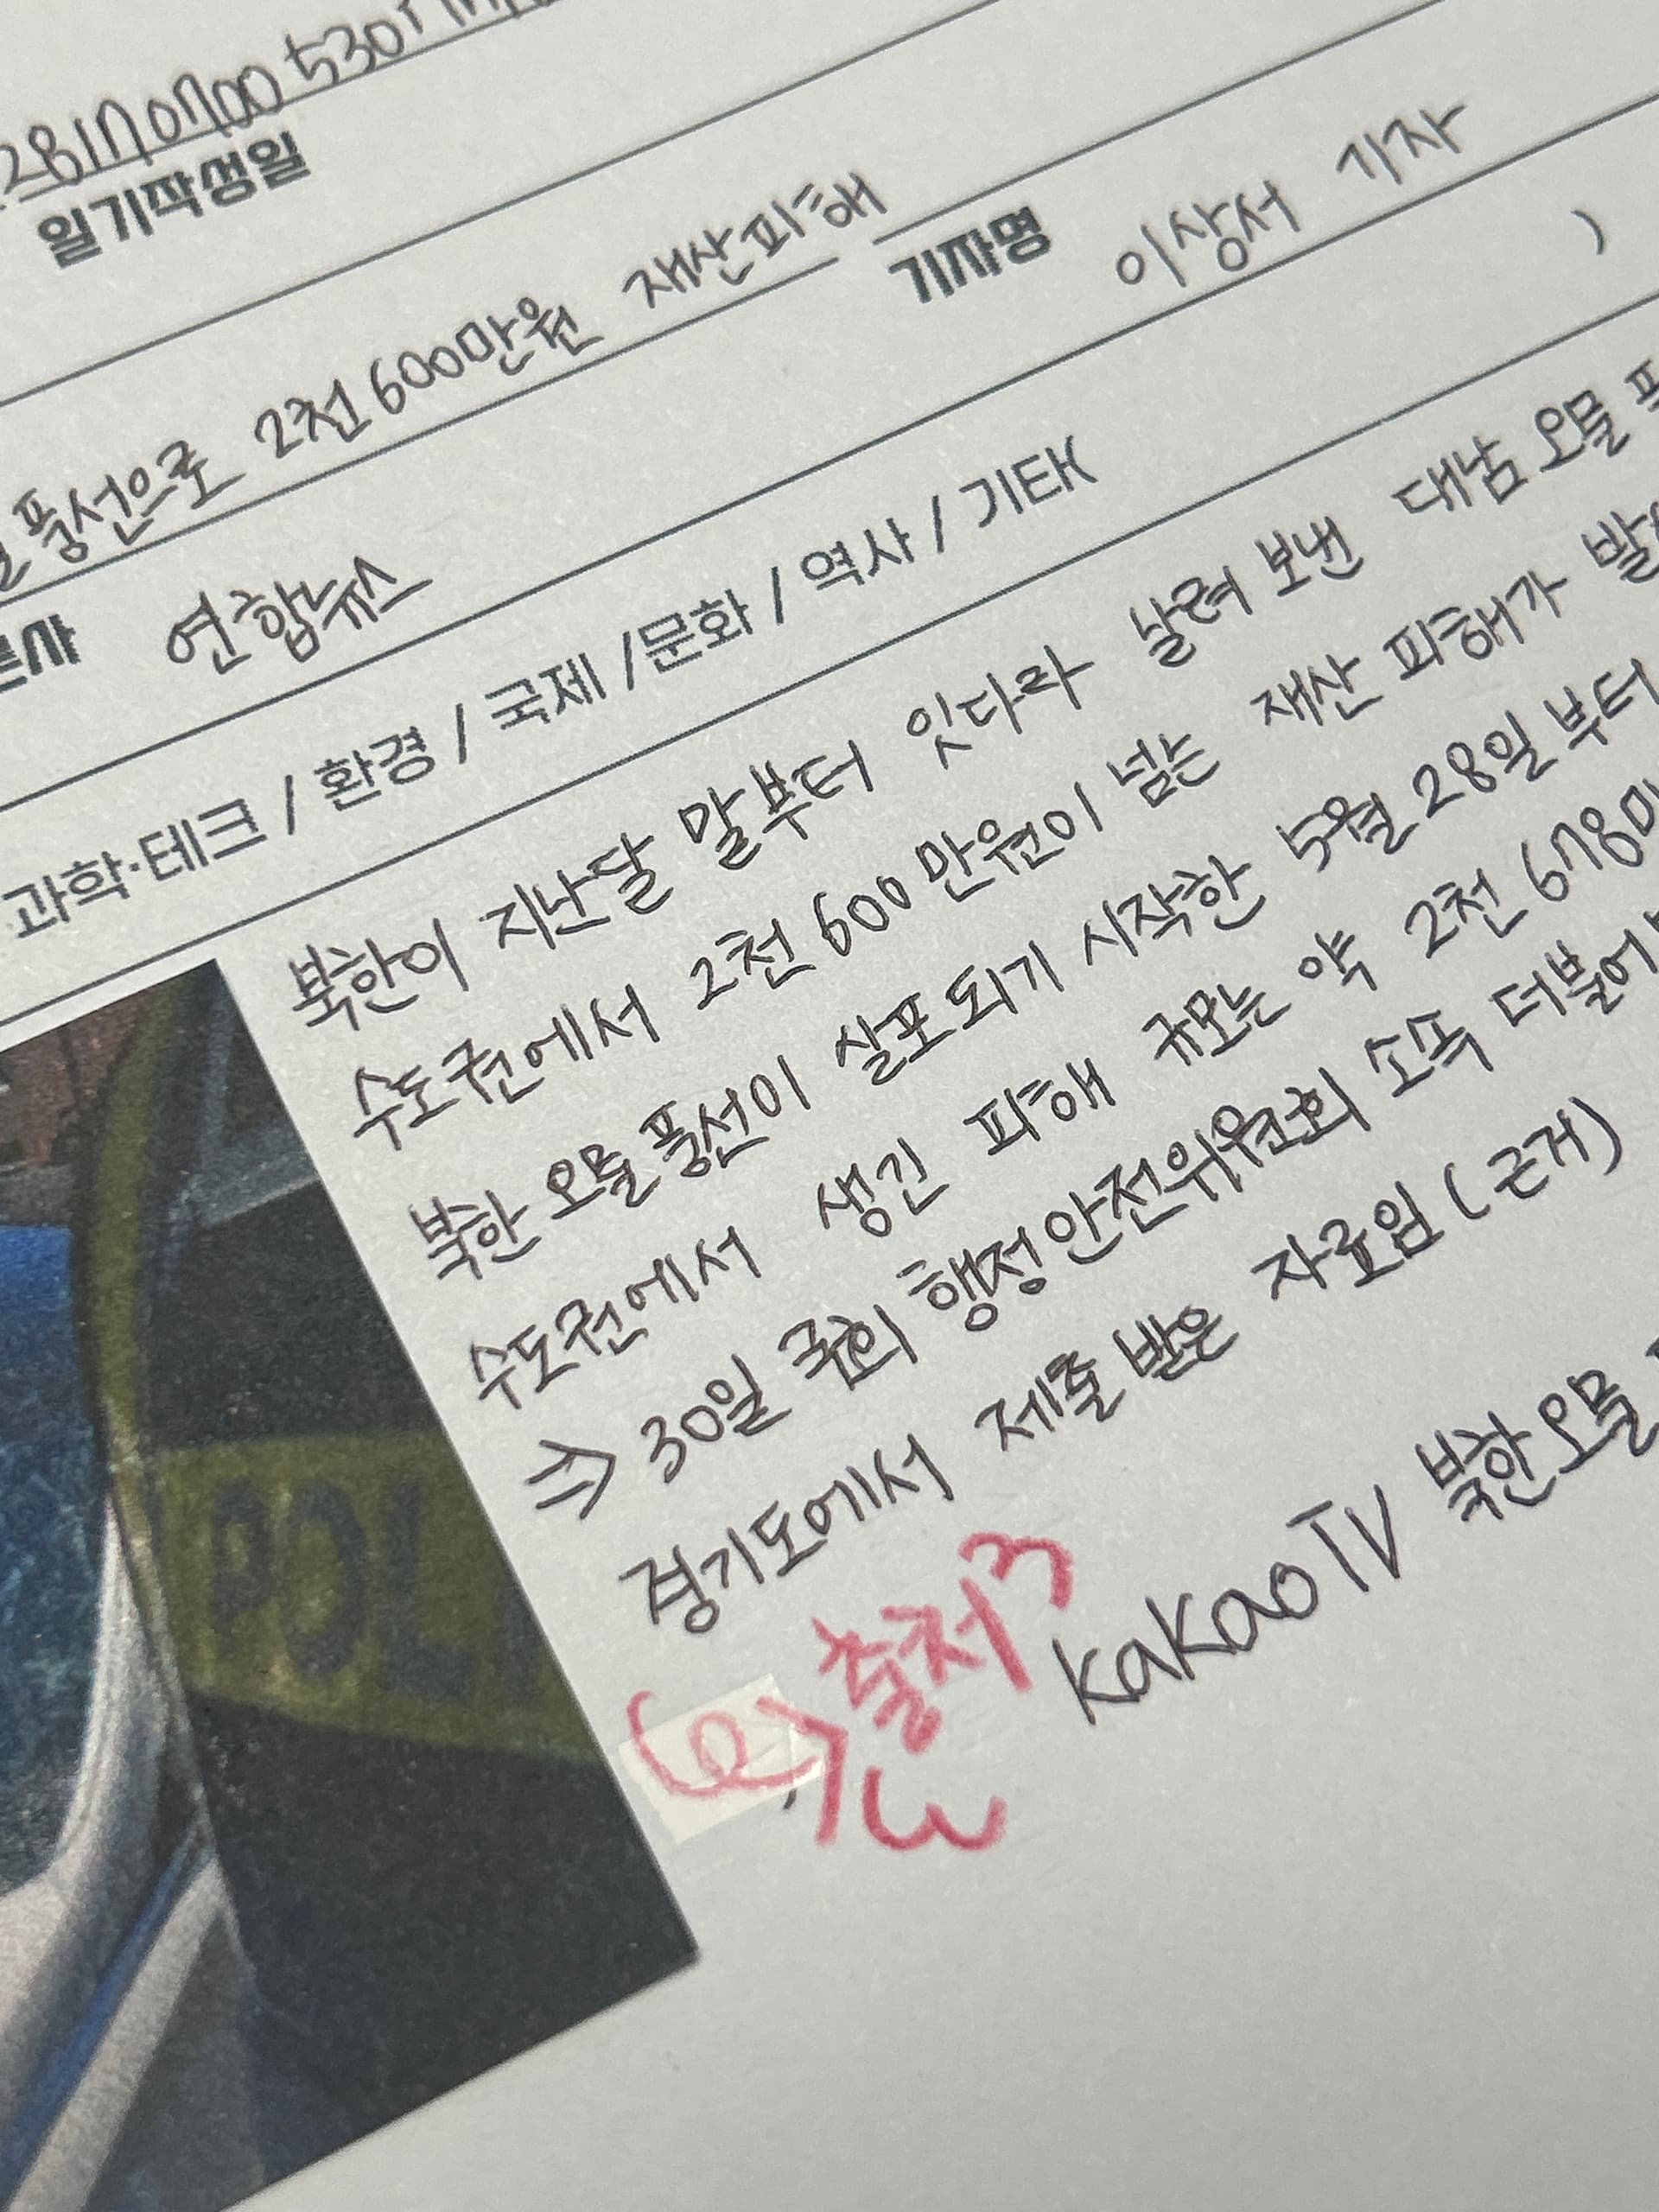 일기작성일
풍선으로 2천 600만원 재산피해
연합뉴스 기자명 이상서 기자
과학·테크 / 환경 / 국제 / 문화 / 역사 / 기타( )
북한이 지난달 말부터 잇다라 날려 보낸 대남 오물
수도권에서 2천 600만원이 넘는 재산 피해가
북한 오물 풍선이 살포되기 시작한 5월 28일 부터
수도권에서 생긴 피해 규모는 약 2천 678만
⇒ 30일 국회 행정안전위원회 소속 더불어
경기도에서 제출 받은 자료임 (근거)
출처
KaKao TV 북한 오물